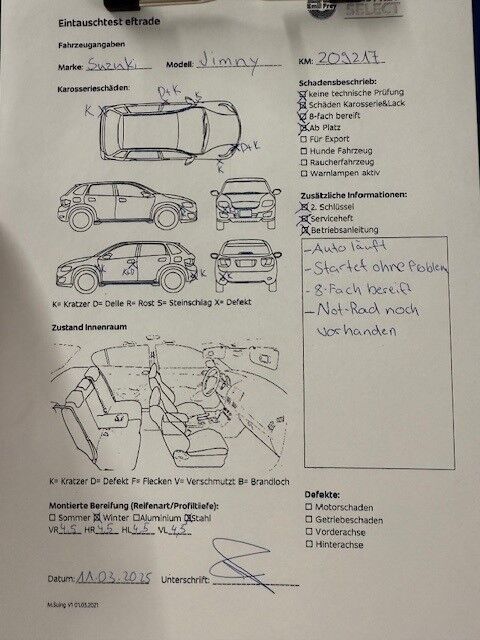 SELECT
Eintauschtest eftrade
Fahrzeugangaben
Marke: Suzuki Modell: Jimny KM: 209217
Karosserieschäden:
D+K
K
K
D+K
K
K
K+D
K
K
K= Kratzer D= Delle R= Rost S= Steinschlag X= Defekt
Schadensbeschrieb:
☒ keine technische Prüfung
☒ Schäden Karosserie&Lack
☒ 8-fach bereift
☒ Ab Platz
☐ Für Export
☐ Hunde Fahrzeug
☐ Raucherfahrzeug
☐ Warnlampen aktiv
Zusätzliche Informationen:
☒ 2. Schlüssel
☒ Serviceheft
☒ Betriebsanleitung
- Auto läuft
- Startet ohne Problem
- 8-Fach bereift
- Not-Rad noch
vorhanden
Zustand Innenraum
K= Kratzer D= Defekt F= Flecken V= Verschmutzt B= Brandloch
Montierte Bereifung (Reifenart/Profiltiefe):
☐ Sommer ☒ Winter ☐ Aluminium ☒ Stahl
VR 4.5 HR 4.5 HL 4.5 VL 4.5
Defekte:
☐ Motorschaden
☐ Getriebeschaden
☐ Vorderachse
☐ Hinterachse
Datum: 11.03.2025 Unterschrift:
M.Suing V1 01.03.2021